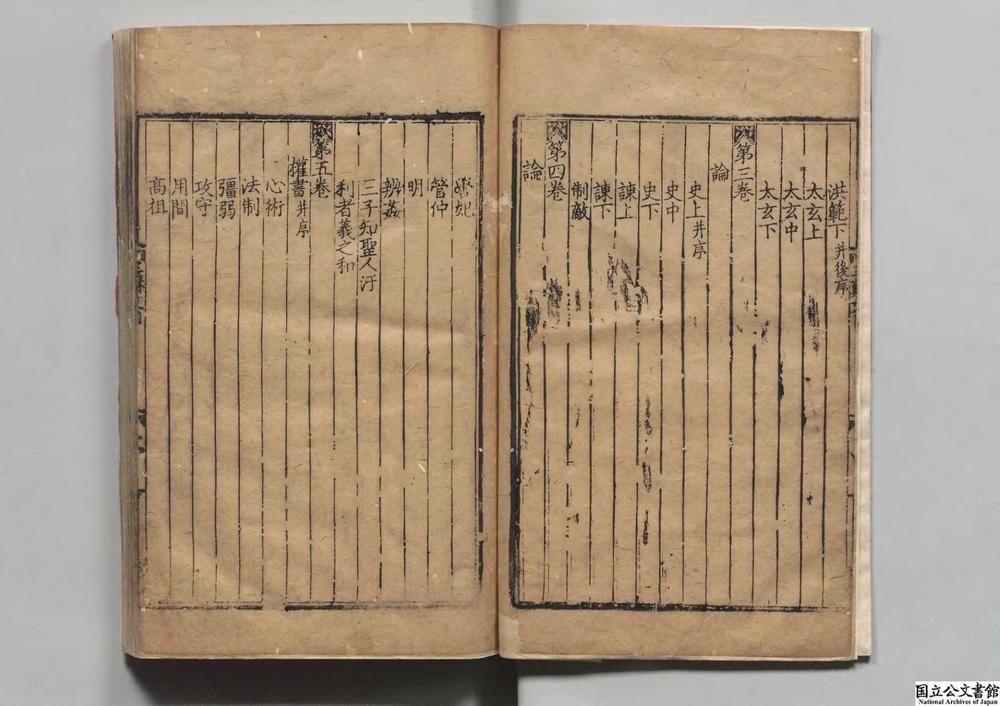 洪範下并後序
太玄上
太玄中
太玄下
第三卷
論
史上并序
史中
史下
諫上
諫下
制敵
第四卷
論
嚳妃
管仲
明
辨姦
三子知聖人汙
利者義之和
第五卷
權書并序
心術
法制
彊弱
攻守
用間
高祖
国立公文書館
National Archives of Japan